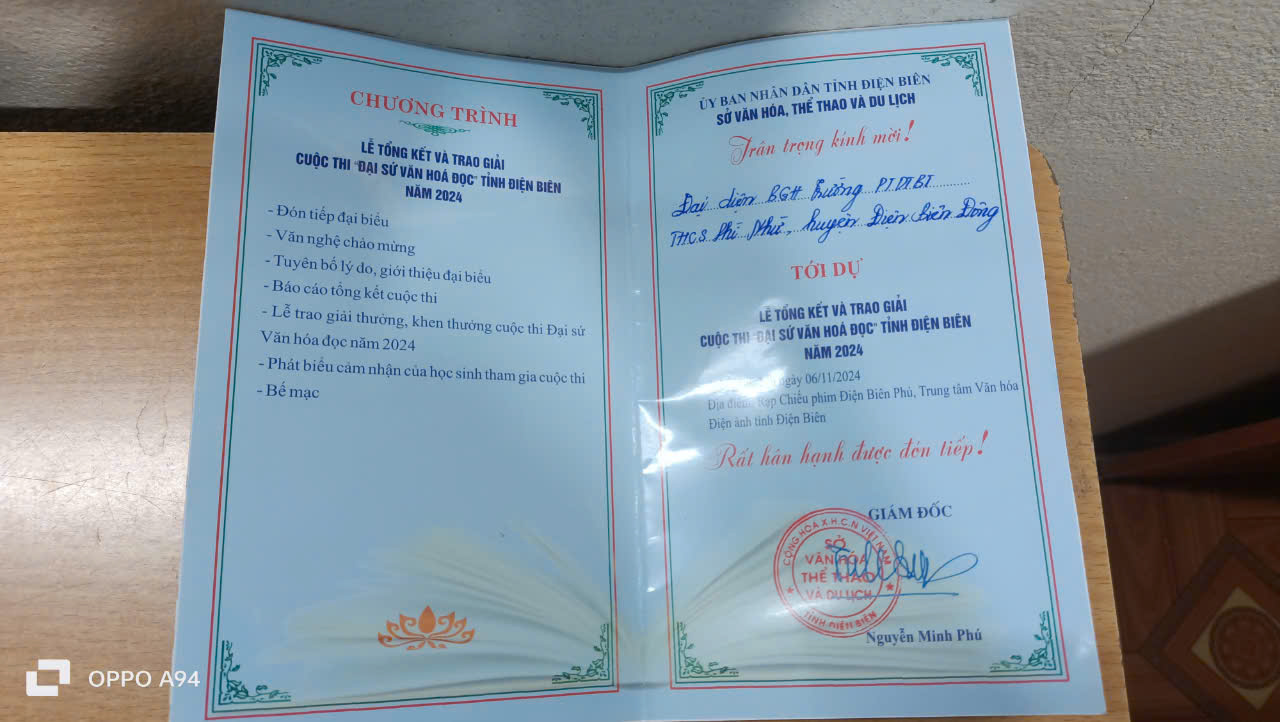 CHƯƠNG TRÌNH
LỄ TỔNG KẾT VÀ TRAO GIẢI
CUỘC THI "ĐẠI SỨ VĂN HOÁ ĐỌC" TỈNH ĐIỆN BIÊN
NĂM 2024
- Đón tiếp đại biểu
- Văn nghệ chào mừng
- Tuyên bố lý do, giới thiệu đại biểu
- Báo cáo tổng kết cuộc thi
- Lễ trao giải thưởng, khen thưởng cuộc thi Đại sứ
Văn hóa đọc năm 2024
- Phát biểu cảm nhận của học sinh tham gia cuộc thi
- Bế mạc
ỦY BAN NHÂN DÂN TỈNH ĐIỆN BIÊN
SỞ VĂN HÓA, THỂ THAO VÀ DU LỊCH
Trân trọng kính mời!
Đại diện BGH trường PTDTBT
THCS Phì Nhừ, huyện Điện Biên Đông
TỚI DỰ
LỄ TỔNG KẾT VÀ TRAO GIẢI
CUỘC THI "ĐẠI SỨ VĂN HOÁ ĐỌC" TỈNH ĐIỆN BIÊN
NĂM 2024
ngày 06/11/2024
Địa điểm: Rạp Chiếu phim Điện Biên Phủ, Trung tâm Văn hóa
Điện ảnh tỉnh Điện Biên
Rất hân hạnh được đón tiếp!
GIÁM ĐỐC
CỘNG HÒA X.H.C.N VIỆT NAM
SỞ
VĂN HÓA
THỂ THAO
VÀ DU LỊCH
TỈNH ĐIỆN BIÊN
Nguyễn Minh Phú
OPPO A94